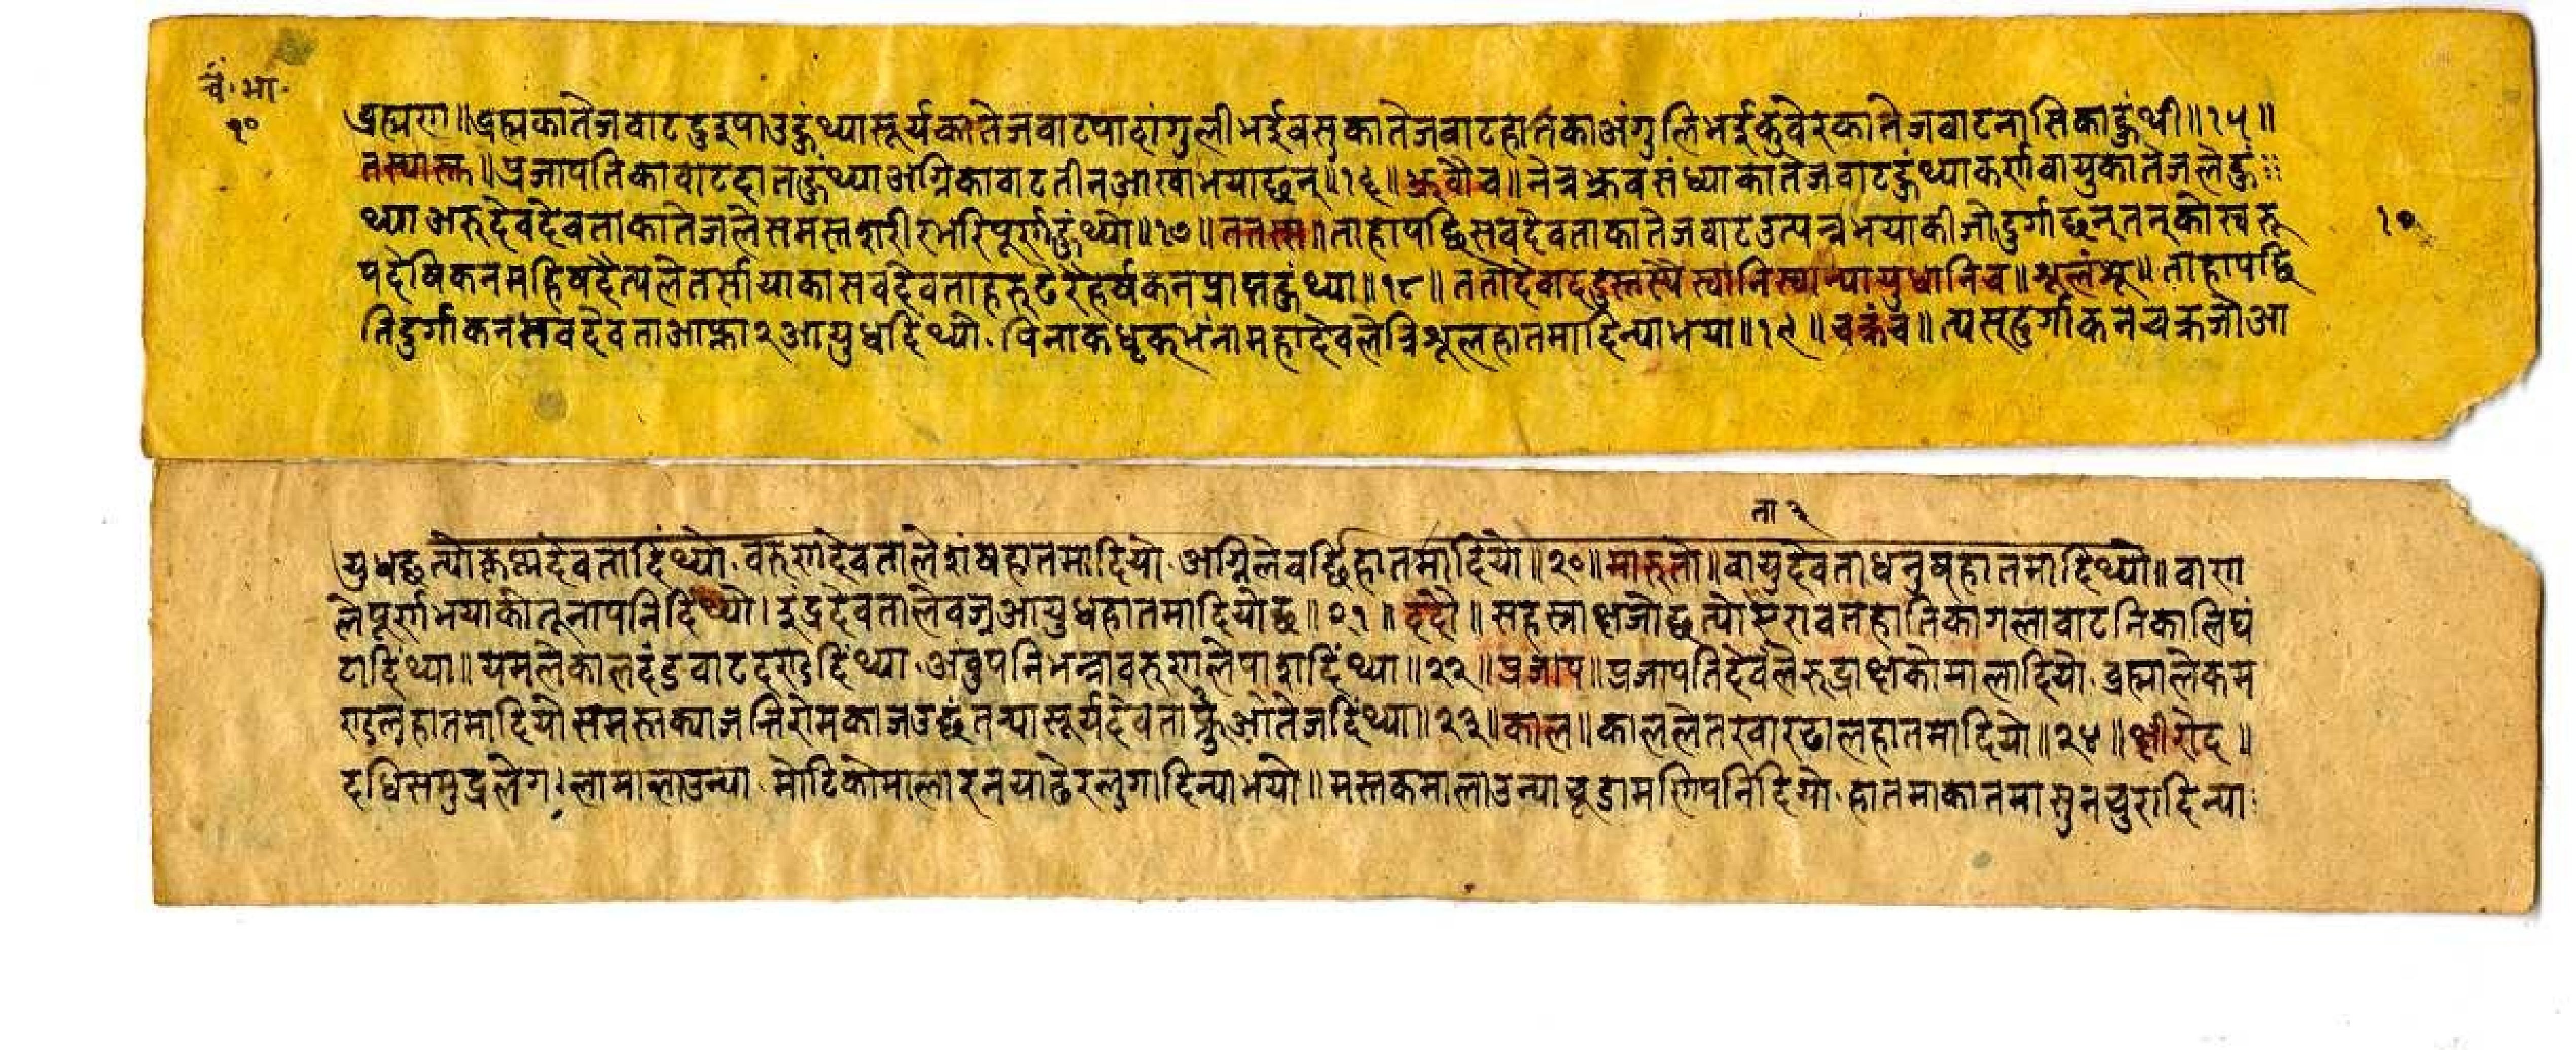 चं. भा.
१०
ब्रह्मण॥ब्रह्मकातेजवाटदुइपाउहुंथ्यासूर्यकातेजवाटपाहांगुलीभईवसुकातेजवाटहातकाअंगुलिभईकुवेरकातेजवाटनासिकाहुंथी॥१५॥
तस्यास्त॥प्रजापतिकावाटदातहुंथ्याअग्निकावाटतीनआखाभयाछन्॥१६॥भ्रुवौच॥नेत्रभ्रुवसंध्याकातेजवाटहुंथ्याकर्णवायुकातेजलेहुं
थ्याअरुदेवदेवताकातेजलेसमस्तशरीरभरिपूर्णहुंथ्यो॥१७॥ततस्स॥ताहापछिसवदेवताकातेजवाटउत्पन्नभयाकीजोदुर्गाछन्तन्कोस्वरू
१०
पदेषिकनमहिषदैत्यलेतर्सायाकासवदेवताहरुठेरैहर्षकनप्राप्तहुंथ्या॥१८॥ततोदेवाददुस्तस्यैस्वानिस्वान्यायुधानिच॥शूलंशू॥ताहापछि
तिदुर्गाकनसवदेवताआफ्ना२आयुधदिंथ्यो.पिनाकधृक्भंनामहादेवलेत्रिशूलहातमादिन्याभया॥१९॥चक्रंच॥त्यसदुर्गाकनचक्रजोआ
ता १
युधछत्योकृष्णदेवतादिंथ्यो.वरुणदेवतालेशंषहातमादियो.अग्निलेवर्छिहातमादियो॥२०॥मारुतो॥वायुदेवताधनुषहातमादिंथ्यो॥वाण
लेपूर्णभयाकोतूनापनिदिंथ्यो।इंद्रदेवतालेवज्रआयुधहातमादियोछ॥२१॥ददौ॥सहस्राक्षजोछत्योऐरावतहात्तिकागलावाटनिकालिघं
टादिंथ्या॥यमलेकालदंडवाटदण्डदिंथ्या.अंवुपनिभन्नावरुणलेपाशदिंथ्या॥२२॥प्रजाप॥प्रजापतिदेवलेरुद्राक्षकोमालादियो.ब्रह्मालेकम
ण्डलुहातमादियोसमस्तक्याजत्तिरोमकाजउछंतन्यासूर्यदेवताआफ्नुंतेजदिंथ्या॥२३॥काल॥काललेतरवारढालहातमादियो॥२४॥क्षीरोद॥
दधिसमुद्रलेगलामालाउन्या.मोटिकोमालारनयाठेरलुगादिन्याभयो॥मस्तकमालाउन्याचूडामणिपनिदियो.हातमाकानमासुनचुरादिन्या